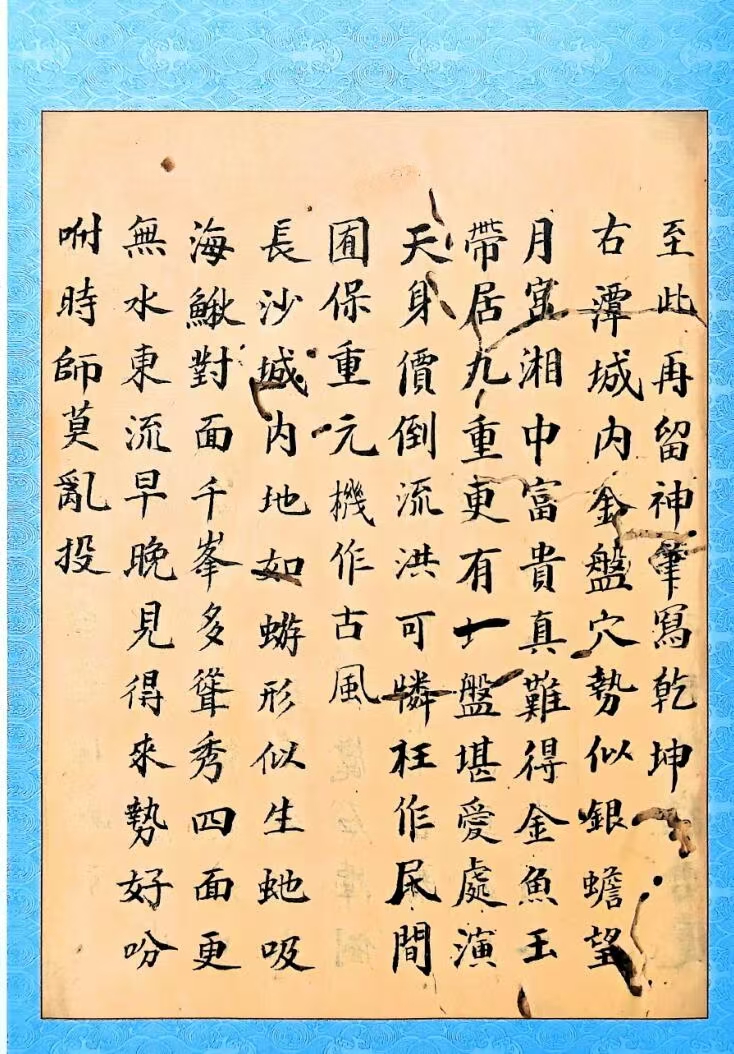 至此再留神筆寫乾坤
右潭城內金盤穴勢似銀蟾望
月宮湘中富貴真難得金魚玉
帶居九重更有一盤堪愛處演
天身價倒流洪可憐枉作民間
圃保重元機作古風
長沙城內地如蝣形似生虵吸
海鰍對面千峯多聳秀四面更
無水東流早晚見得來勢好吩
咐時師莫亂投